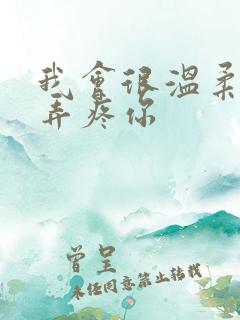 我會很溫柔
弄疼你
曾呈
未经同意禁止转载